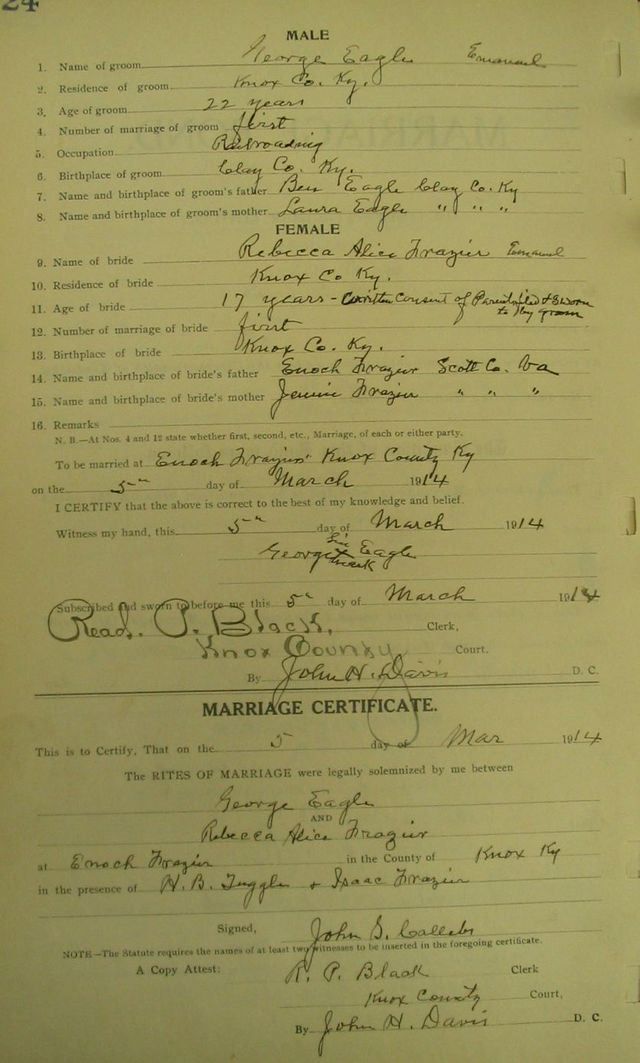 24
MALE
1. Name of groom George Eagle Emanuel
2. Residence of groom Knox Co. Ky.
3. Age of groom 22 years
4. Number of marriage of groom first
5. Occupation Railroading
6. Birthplace of groom Clay Co. Ky.
7. Name and birthplace of groom's father Ben Eagle Clay Co. Ky
8. Name and birthplace of groom's mother Laura Eagle " " "
FEMALE
9. Name of bride Rebecca Alice Frazier Emanuel
10. Residence of bride Knox Co Ky.
11. Age of bride 17 years - written consent of Parents filed & Sworn
to by groom
12. Number of marriage of bride first
13. Birthplace of bride Knox Co. Ky.
14. Name and birthplace of bride's father Enoch Frazier Scott Co. Va
15. Name and birthplace of bride's mother Jennie Frazier " " "
16. Remarks
N. B.—At Nos. 4 and 12 state whether first, second, etc., Marriage, of each or either party.
To be married at Enoch Fraziers' Knox County Ky
on the 5" day of March 1914
I CERTIFY that the above is correct to the best of my knowledge and belief.
Witness my hand, this 5" day of March 1914
George his x mark Eagle
Subscribed and sworn to before me this 5" day of March 1914
Read. P. Black, Clerk,
Knox County Court.
By John H. Davis D. C.
MARRIAGE CERTIFICATE.
This is to Certify, That on the 5 day of Mar 1914
The RITES OF MARRIAGE were legally solemnized by me between
George Eagle
AND
Rebecca Alice Frazier
at Enoch Frazier in the County of Knox Ky
in the presence of H. B. Tuggle & Isaac Frazier
Signed, John S.
NOTE—The Statute requires the names of at least two witnesses to be inserted in the foregoing certificate.
A Copy Attest: R. P. Black Clerk
Knox County Court,
By John H. Davis D. C.